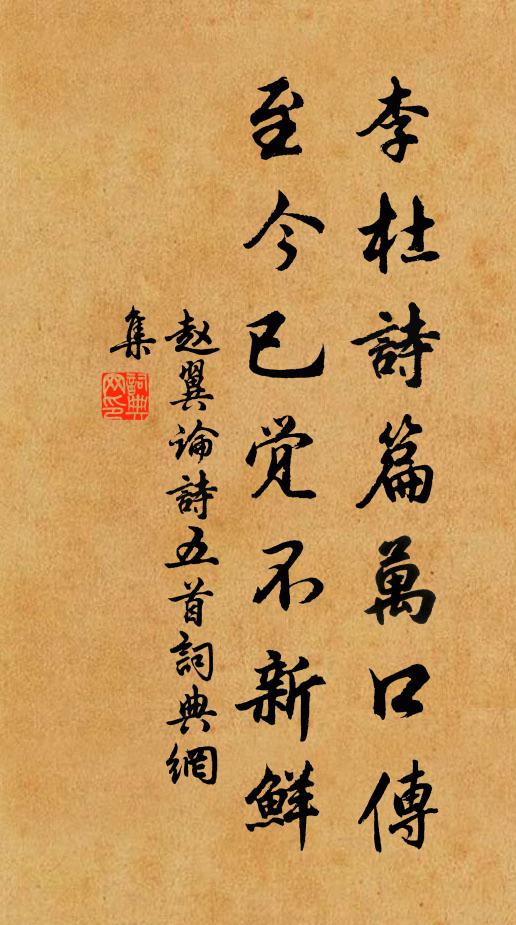 李杜詩篇萬口傳
至今已觉不新鮮
赵翼論詩五首詞典網
集
詞典
网印